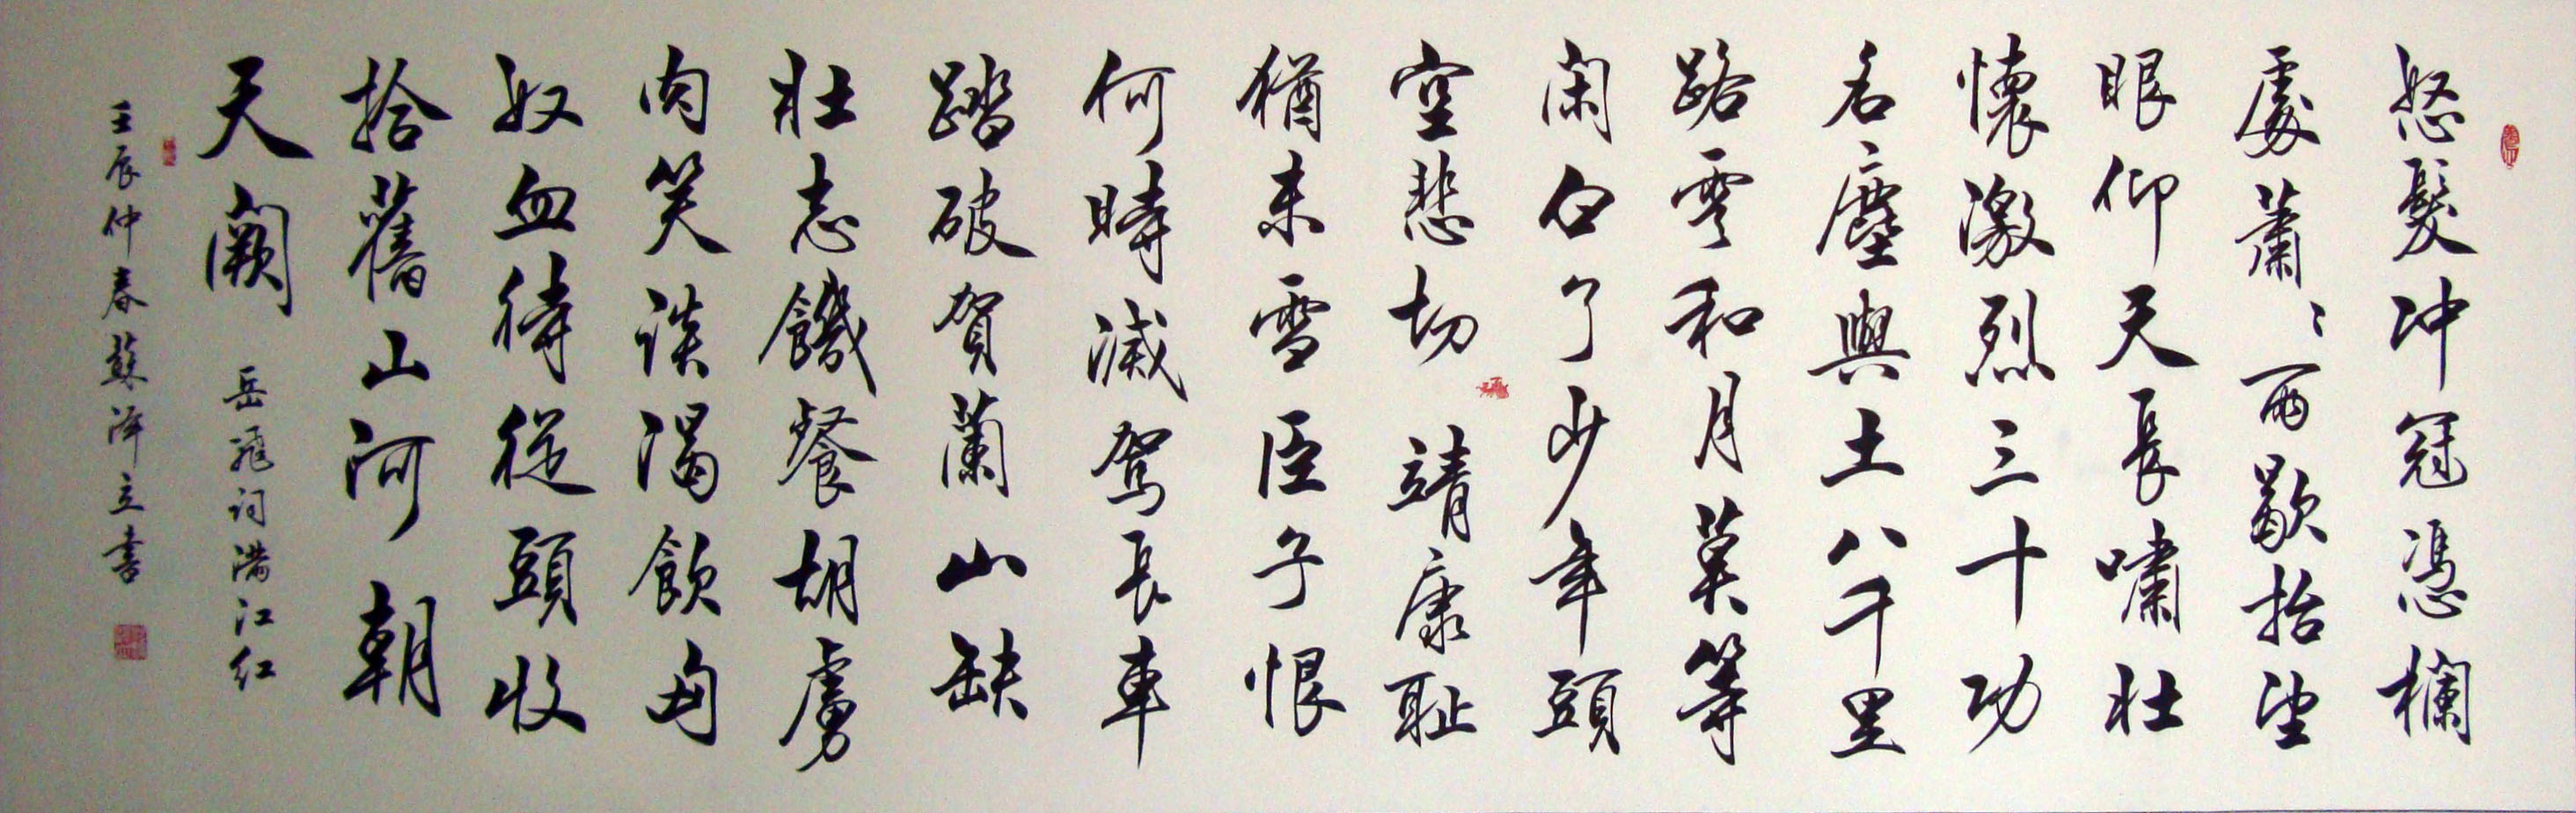 怒髮冲冠憑欄
處蕭〻雨歇抬望
眼仰天長嘯壯
懷激烈三十功
名塵與土八千里
路雲和月莫等
闲白了少年頭
空悲切 靖康耻
猶未雪臣子恨
何時滅驾長車
踏破賀蘭山缺
壯志饑餐胡虜
肉笑談渴飲匈
奴血待從頭收
拾舊山河 朝
天闕 岳飛词满江红
壬辰仲春蘇泽立書